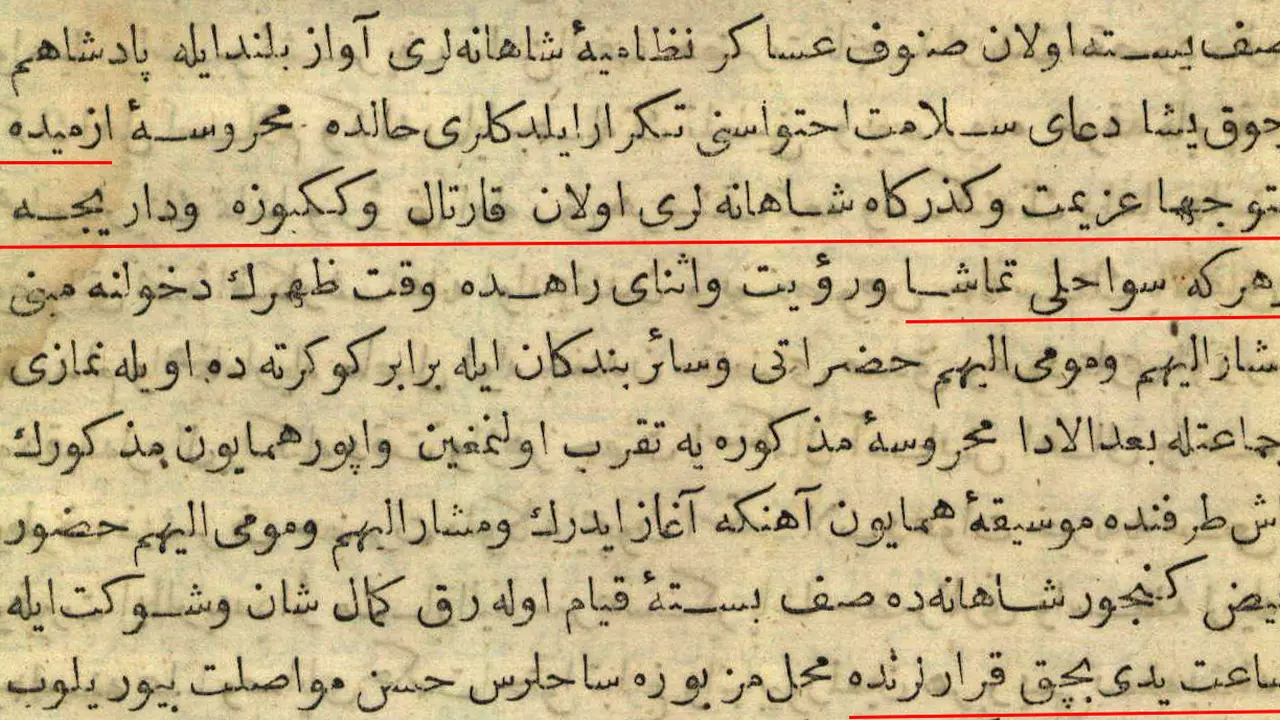 صف بسته اولان صنوف عساكر نظاميۀ شاهانه‌لرى آواز بلند ايله پادشاهم
چوق يشا دعاى سلامت احتواسنى تكرار ايلدكلرى حالده محروسۀ ازميده
توجها عزيمت وكذركاه شاهانه لرى اولان قارتال وككبوزه ودار يجه
وهركه سواحلى تماشا ورؤيت واثناى راهده وقت ظهرك دخولنه مبنى
مشار اليهم ومومى اليهم حضراتى وسائر بندكان ايله برابر كوكرته ده اويله نمازى
جماعتله بعد الادا محروسۀ مذكوره يه تقرب اولنمغين واپور همايون مذكورك
طرفنده موسيقۀ همايون آهنكه آغاز ايدرك ومشار اليهم ومومى اليهم حضور
فيض كنجور شاهانه‌ده صف بستۀ قيام اوله رق كمال شان وشوكت ايله
ساعت يدى بچق قرار لرنده محل مزبوره ساحلرس حسن مواصلت بيوريلوب